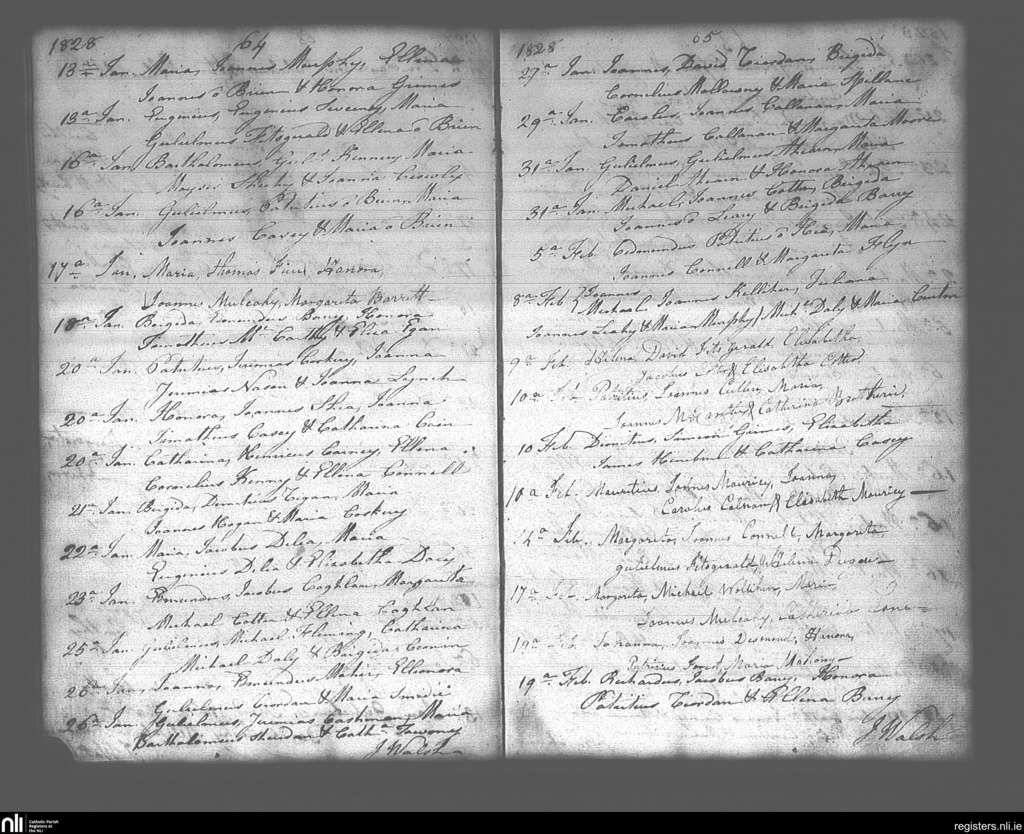 1828 64
13a Jan. Maria, Joannes Murphy, Ellena
Joannes ô Brien & Honora Grimes
13a Jan. Eugenius, Eugenius Sweeney, Maria
Gulielmus Fitzgerald & Ellena ô Brien
16a Jan. Bartholomeus, Kennery Maria
Sheehy & Joanna Crowly
16a Jan. Gulielmus, Patritius ô Brien Maria
Joannes Carey & Maria ô Brien
17a Jan. Maria, Thomas Finn Honora,
Joannes Mulcahy, Margarita Barrett
18a Jan. Brigida, Edmundus Barry, Honora
Timotheus Mc Carthy & Eliza Egan
20a Jan. Patritius, Jeremias Corkery, Joanna
Jeremias Nason & Joanna Lynch
20a Jan. Honora, Joannes Shea, Joanna
Timotheus Casey & Catharina
20a Jan. Catharina, Henricus Carney, Ellena
Cornelius Kenny & Ellena Connell
21a Jan. Brigida, Demetrius Regan, Maria
Joannes Hogan & Maria Corkery
22a Jan. Maria, Jacobus Delia, Maria
Eugenius Delia & Elisabetha Davis
23a Jan. Edmundus, Jacobus Coghlan, Margarita
Michael Cotter & Ellena Coghlan
25a Jan. Gulielmus, Michael Fleming, Catharina
Michael Daly & Brigida Cronin
26a Jan. Joannes, Edmundus Maher, Elleonora
Gulielmus Riordan & Maria
26a Jan. Gulielmus, Jeremias Cashman, Maria,
Bartholomeus Sheedan & Cath:a
J Walsh
1828 65
27a Jan. Joannes, David Riordan, Brigida
Cornelius Mullowny & Maria Spillane
29a Jan. Carolus, Joannes Callinan, Maria
Timotheus Callanan & Margarita Moore
31a Jan. Gulielmus, Gulielmus Ahern Maria
Daniel Ahern & Honora Ahern
31a Jan. Michael, Joannes Cotter, Brigida
Joannes ô Leary & Brigida Barry
5a Feb. Edmundus Patritius ô Hea, Maria
Joannes Connell & Margarita
8a Feb. { Joannes
Michael Joannes Kelliher, Juliana
Joannes Leahy & Maria Murphy / Mich: Daly & Maria
9a Feb. Helena, David Fitzgerald Elisabetha,
Jacobus & Elisabetha
10a Feb. Patritius, Joannes Cullen, Maria,
Joannes McCarthy & Catherina
10 Feb. Demetrius, Simeon Grimes, Elisabetha
James & Catharina Casey
10a Feb. Mauritius, Joannes Mauricy, Joanna,
Carolus & Elisabeth Mauricy
14a Feb. Margarita, Joannes Connell, Margarita,
gulielmus Fitzgerald, & Helena
17a Feb. Margarita, Michael, Maria
Joannes Mulcahy, Catherina
19a Feb. Johanna, Joannes Desmond, Honora,
Patricius, Maria Mahony
19a Feb. Richardus, Jacobus Barry, Honora
Patritius Riordan & Ellena Barry
J Walsh
nli
Catholic Parish
Registers at
the NLI
registers.nli.ie